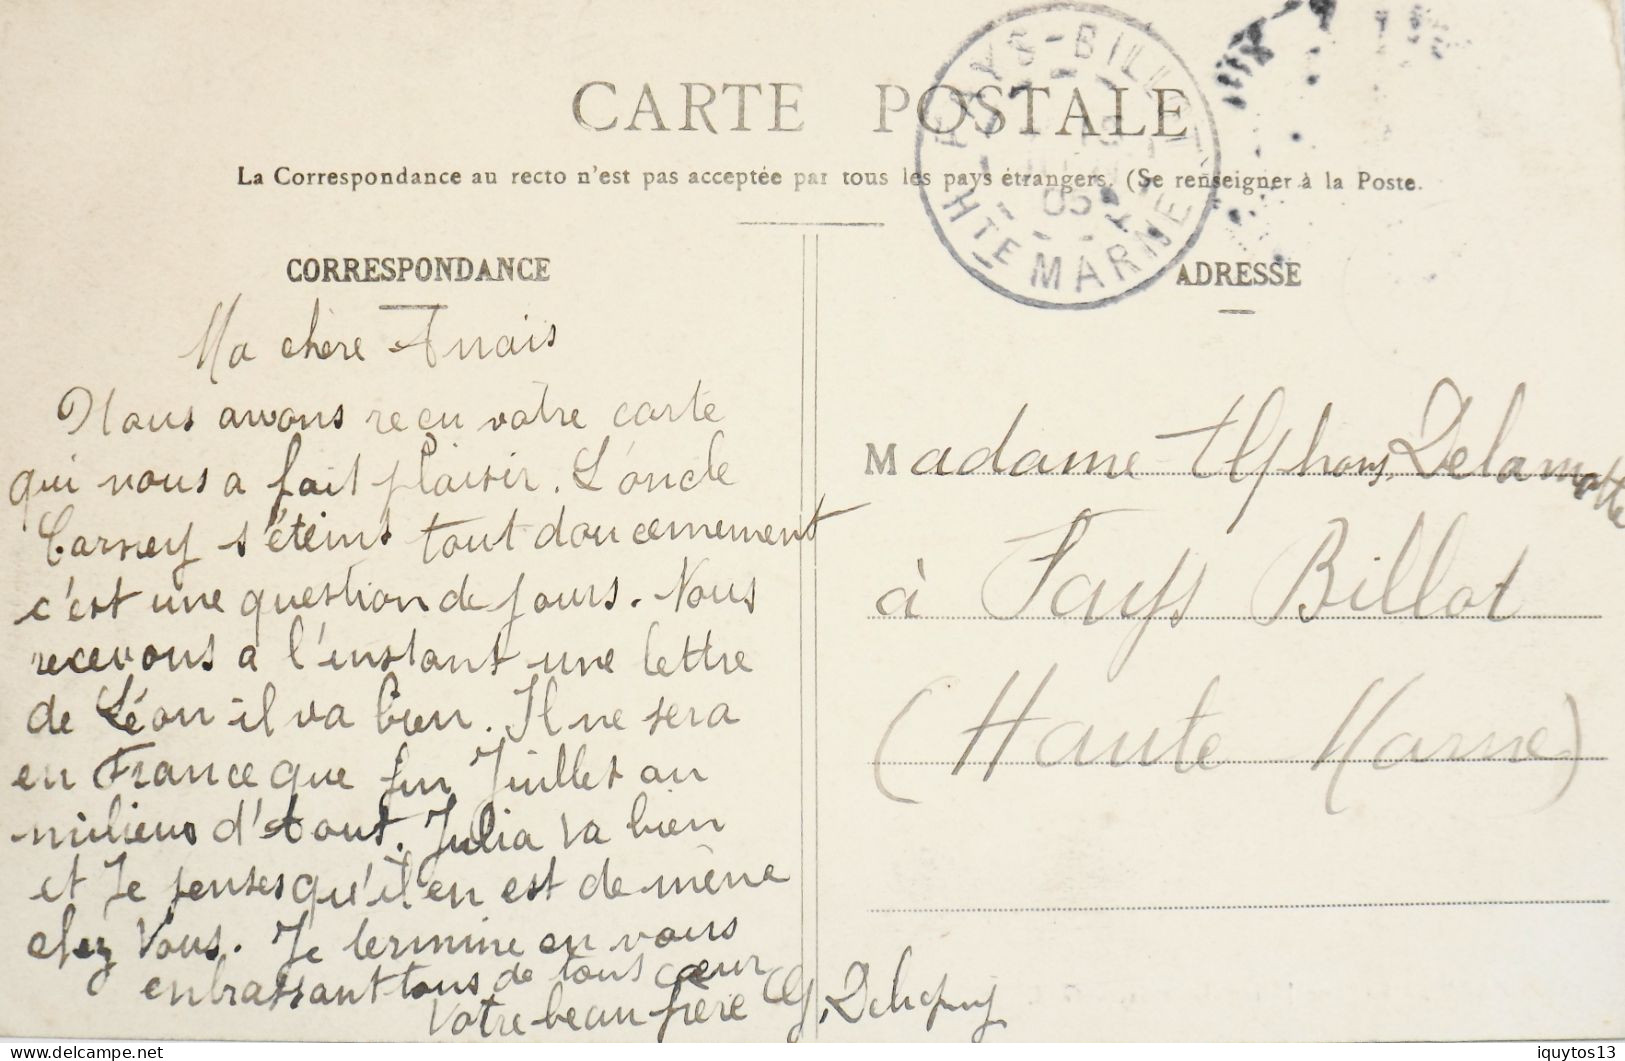 CARTE POSTALE
La Correspondance au recto n'est pas acceptée par tous les pays étrangers. (Se renseigner à la Poste.
PAYS-BILLOT
05
HTE MARNE
CORRESPONDANCE
Ma chère Anais
Nous avons reçu votre carte
qui nous a fait plaisir. L'oncle
s'éteins tout doucemement
c'est une question de jours. Nous
recevons a l'instant une lettre
de Léon il va bien. Il ne sera
en France que fin Juillet au
milieus d'Aout. Julia va bien
et Je penses qu'il en est de mène
chez Vous. Je termine en vous
enbrassant tous de tous cœur
Votre beau frère
ADRESSE
Madame Alphons. Delamotte
à Fays Billot
(Haute Marne)
iquytos13